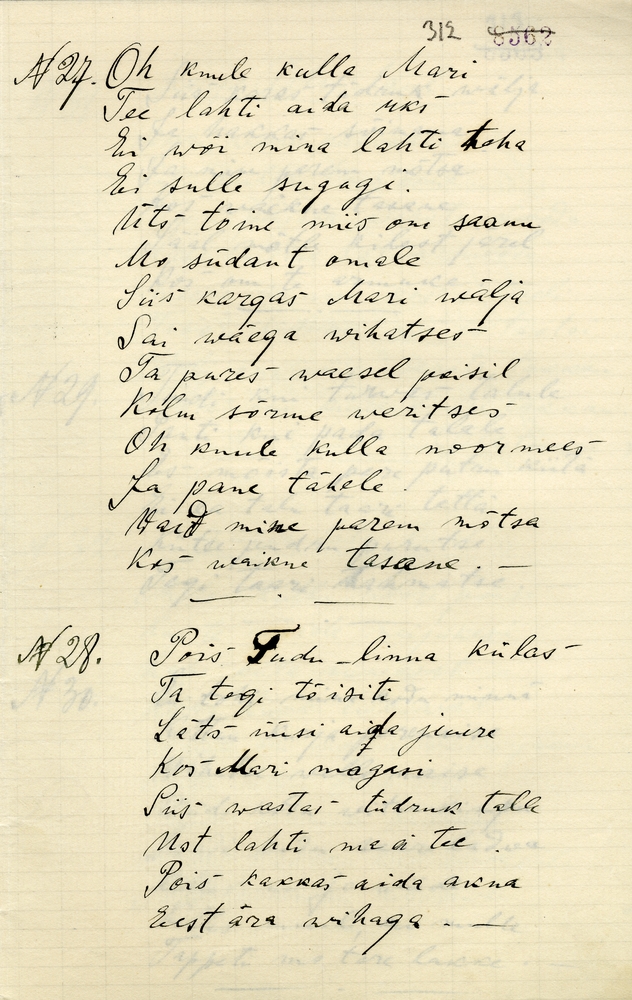 312 8562
N 27. Oh kuule kulla Mari
Tee lahti aida uks
Ei wõi mina lahti teha
Ei sulle sugagi.
Üts tõine miis om saanu
Mo südant omale
Siis kargas Mari wälja
Sai wäega wihatses
Ta pures waesel poisil
Kolm sõrme weritses
Oh kuule kulla noormees
Ja pane tähele.
Waid mine parem mõtsa
Kos waikne tasane. —
N 28. Pois Tudu-linna külas
Ta tegi tõisiti
Läts üüsi aida juure
Kos Mari magasi
Siis wastas tüdruk talle
Ust lahti ma ei tee.
Pois kakkas aida akna
Eest ära wihaga. —